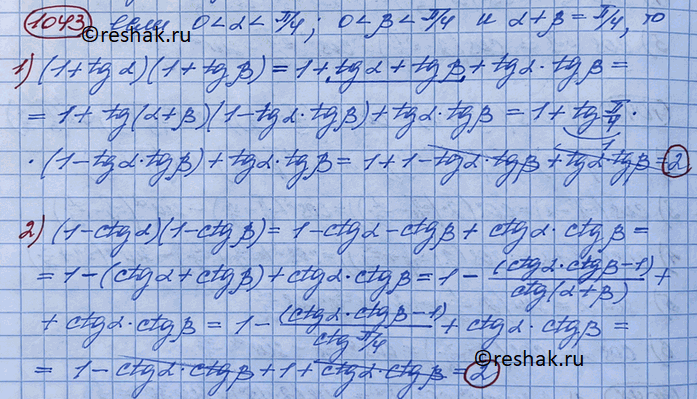 ©reshak.ru
1043 если 0<α<π/4; 0<β<π/4 и α+β=π/4, то
1) (1+tgα)(1+tgβ)=1+tgα+tgβ+tgα·tgβ=
=1+tg(α+β)(1-tgα·tgβ)+tgα·tgβ=1+tg π/4 ·
1
·(1-tgα·tgβ)+tgα·tgβ=1+1-tgα·tgβ+tgα·tgβ=2
2) (1-ctgα)(1-ctgβ)=1-ctgα-ctgβ+ctgα·ctgβ=
=1-(ctgα+ctgβ)+ctgα·ctgβ=1-(ctgα·ctgβ-1)/ctg(α+β)+
+ctgα·ctgβ=1-(ctgα·ctgβ-1)/ctg π/4+ctgα·ctgβ=
=1-ctgα·ctgβ+1+ctgα·ctgβ=2
©reshak.ru